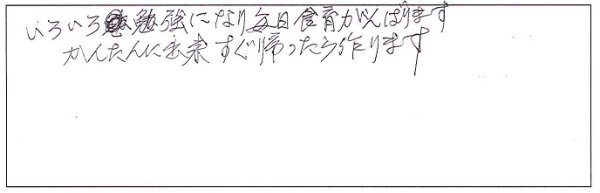 いろいろ勉強になり毎日食育がんばります
かんたんに出来すぐ帰ったら作ります